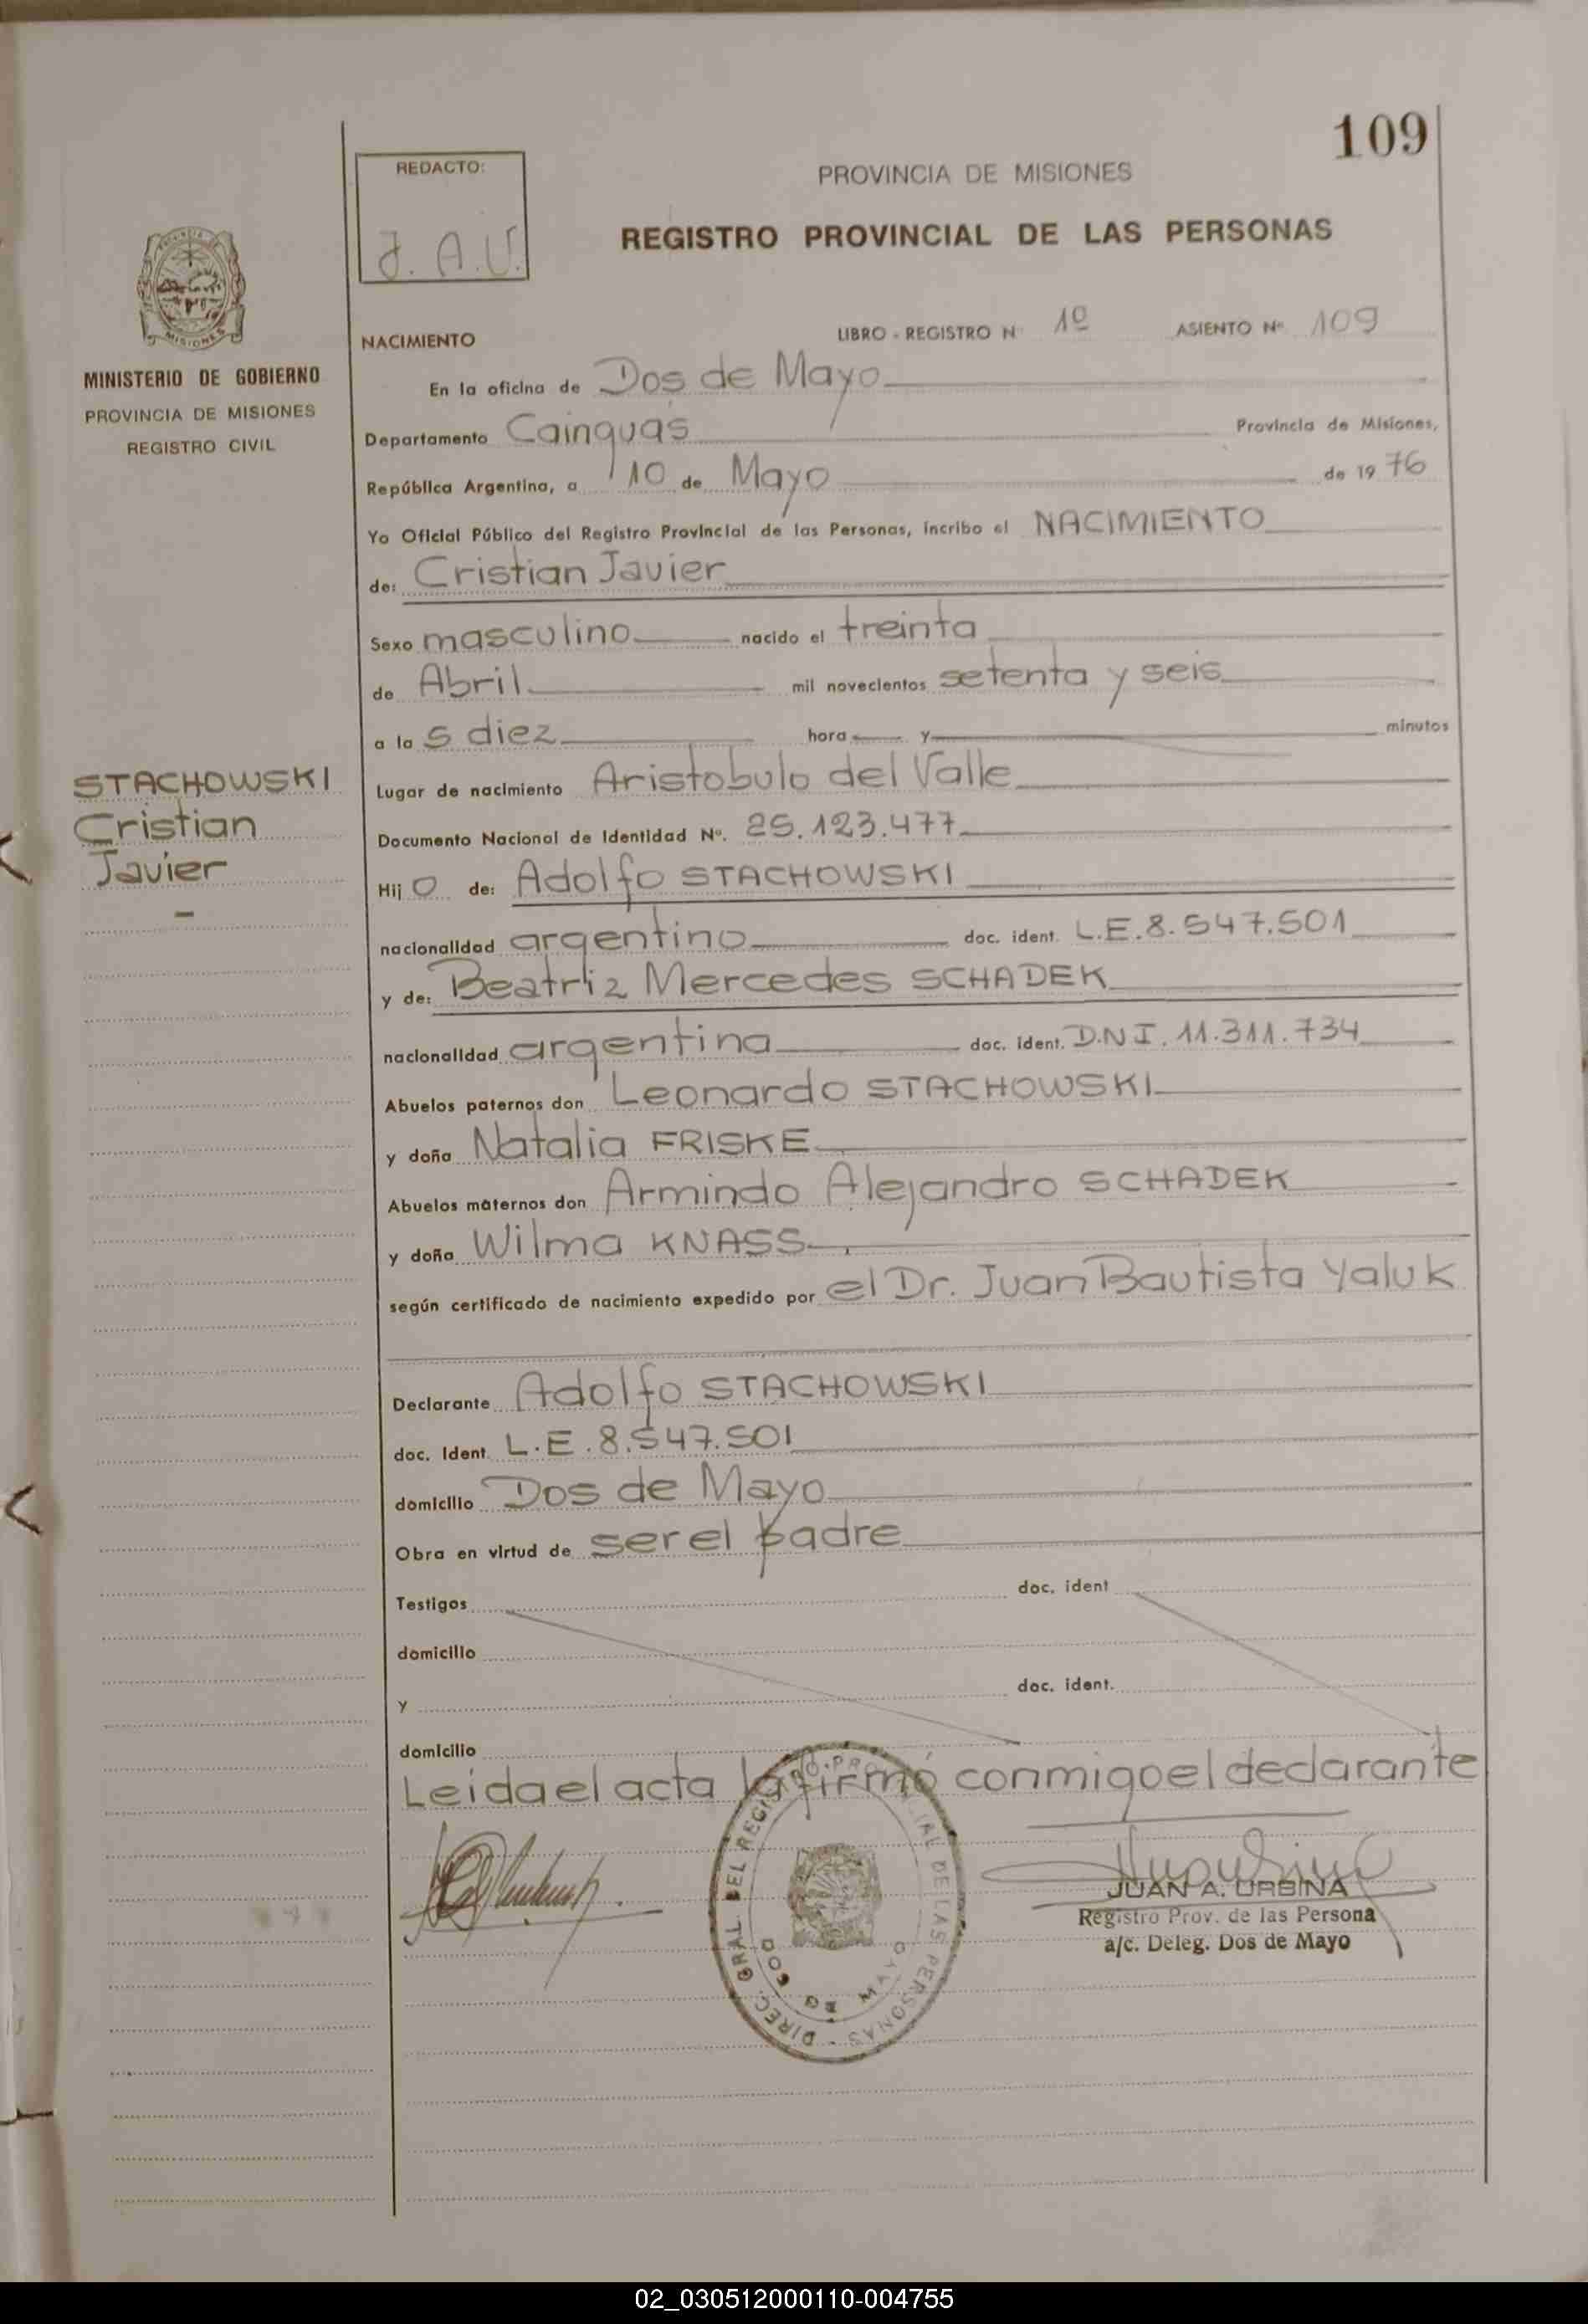 109
REDACTO:
J. A. U.
PROVINCIA DE MISIONES
REGISTRO PROVINCIAL DE LAS PERSONAS
MISIONES
MINISTERIO DE GOBIERNO
PROVINCIA DE MISIONES
REGISTRO CIVIL
NACIMIENTO
LIBRO - REGISTRO N 1º ASIENTO Nº 109
En la oficina de Dos de Mayo
Departamento Cainguás Provincia de Misiones,
República Argentina, a 10 de Mayo de 19 76
Yo Oficial Público del Registro Provincial de las Personas, incribo el NACIMIENTO
de: Cristian Javier
Sexo masculino nacido el treinta
de Abril mil novecientos setenta y seis
a la s diez hora y minutos
STACHOWSKI
Cristian
Javier
Lugar de nacimiento Aristobulo del Valle
Documento Nacional de Identidad Nº. 25.123.477
Hij o de: Adolfo STACHOWSKI
nacionalidad argentino doc. ident. L.E. 8.547.501
y de: Beatriz Mercedes SCHADEK
nacionalidad argentina doc. ident. D.N.I. 11.311.734
Abuelos paternos don Leonardo STACHOWSKI
y doña Natalia FRISKE
Abuelos maternos don Armindo Alejandro SCHADEK
y doña Wilma KNASS
según certificado de nacimiento expedido por el Dr. Juan Bautista Yaluk
Declarante Adolfo STACHOWSKI
doc. Ident. L.E. 8.547.501
domicilio Dos de Mayo
Obra en virtud de ser el padre
Testigos doc. ident
domicilio
y doc. ident.
domicilio
Leida el acta la firmó conmigo el declarante
DIREC. GRAL. DEL REGISTRO PROVINCIAL DE LAS PERSONAS
DOS DE MAYO
JUAN A. URBINA
Registro Prov. de las Persona
a/c. Deleg. Dos de Mayo
02_030512000110-004755